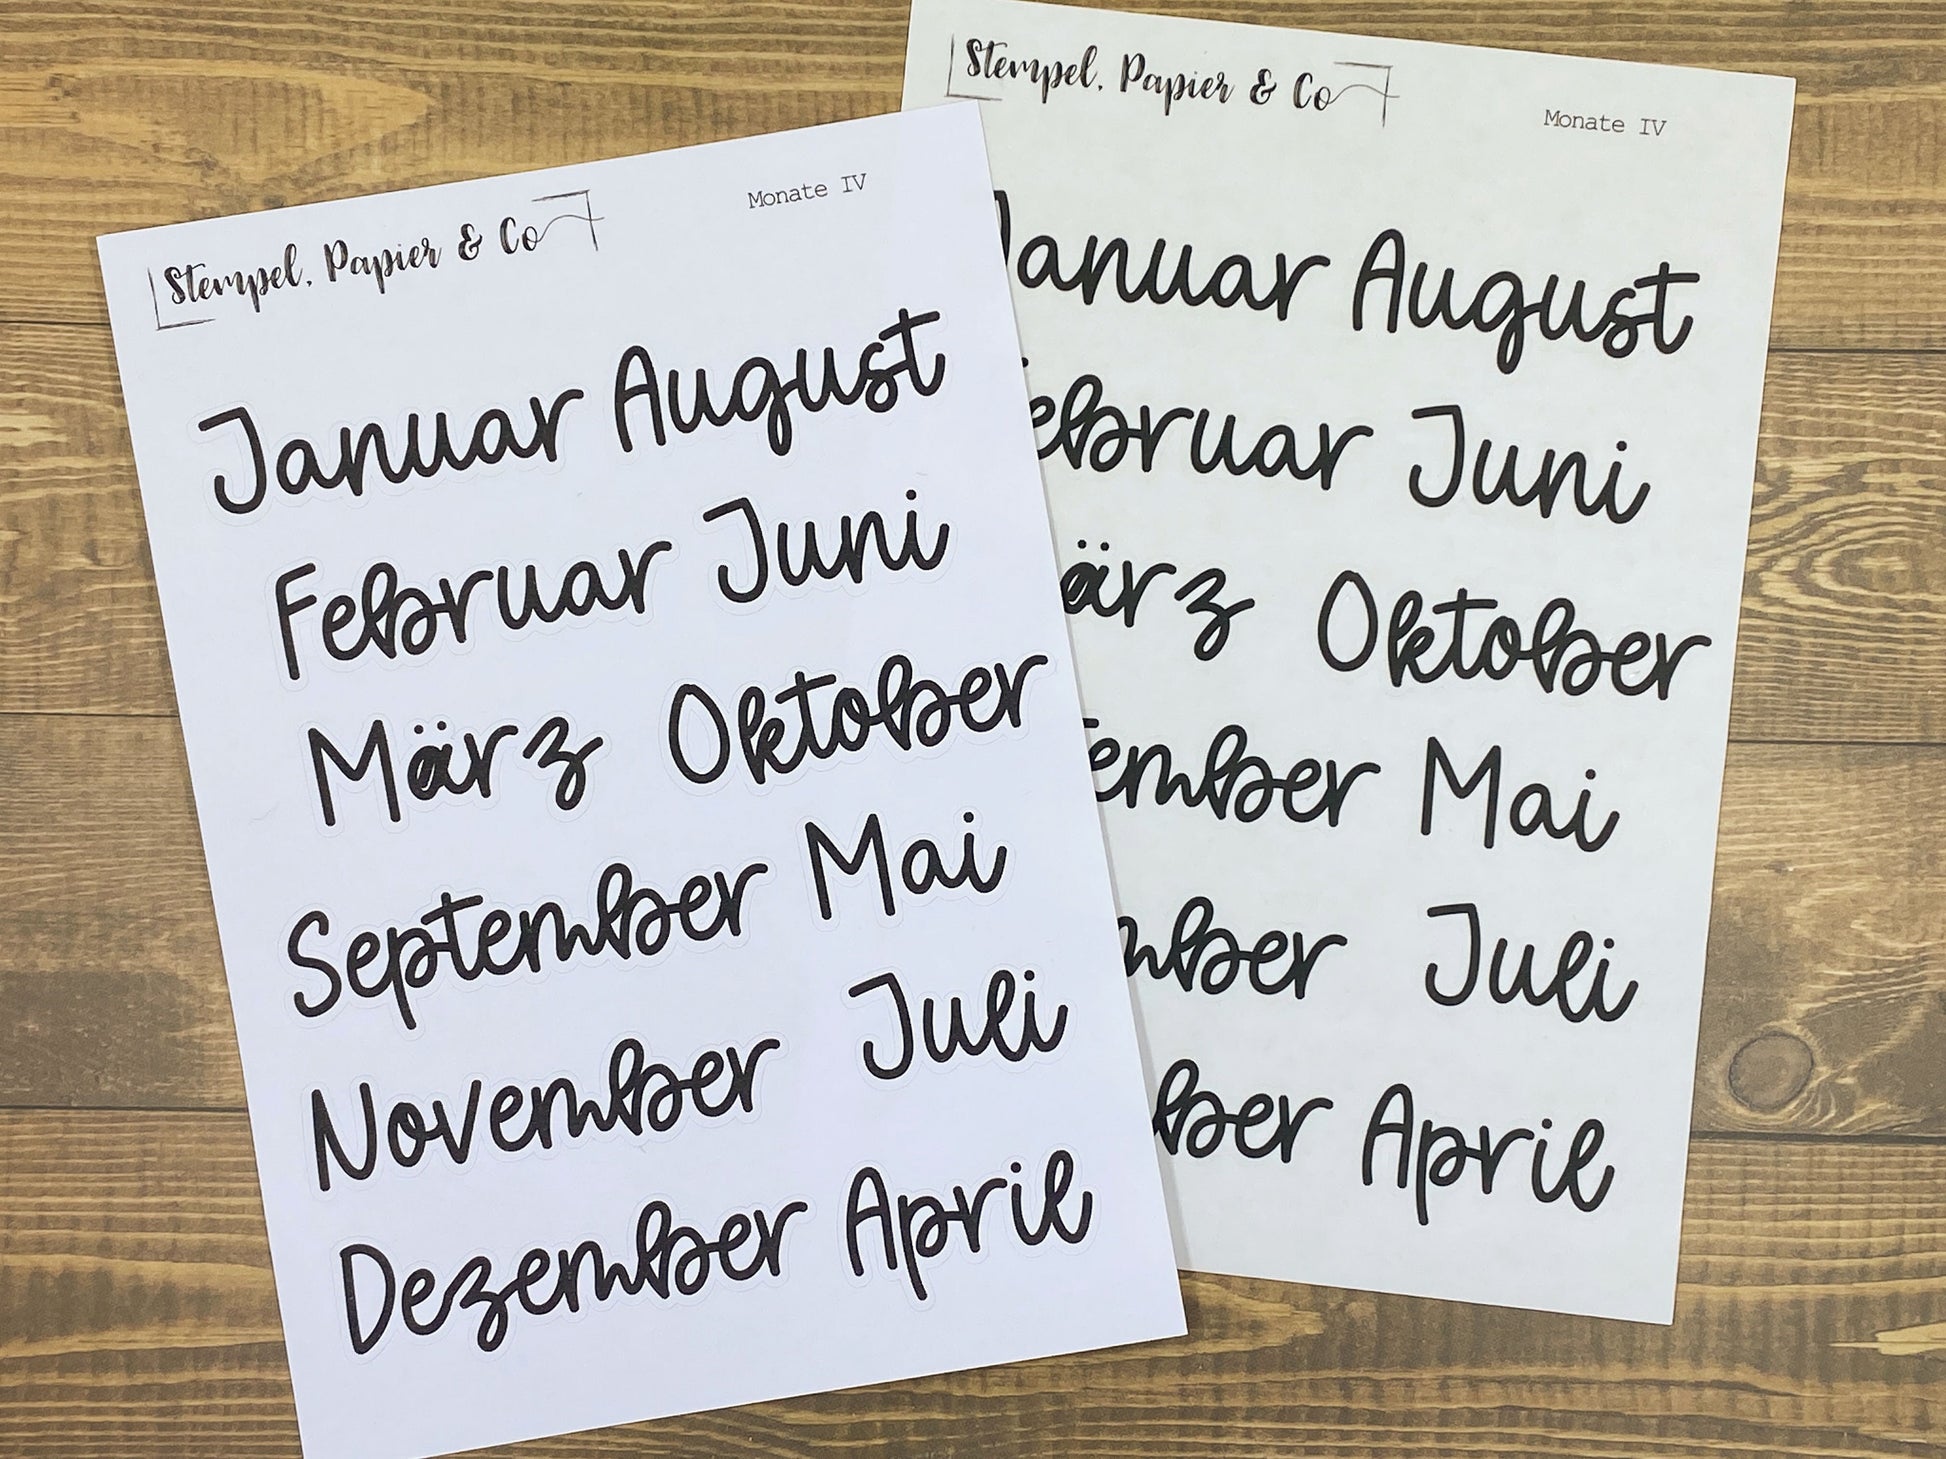 Stempel, Papier & Co
Monate IV
Januar August
Februar Juni
März Oktober
September Mai
November Juli
Dezember April
Stempel, Papier & Co
Monate IV
Januar August
ebruar Juni
ärz Oktober
tember Mai
mber Juli
ber April